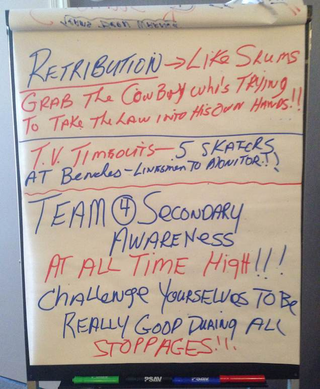 RETRIBUTION → LIKE SLUMS
GRAB THE COWBOY WHO'S TRYING
TO TAKE THE LAW INTO HIS OWN HANDS!!
T.V. TIMEOUTS — 5 SKATERS
AT BENCHES - LINESMEN TO MONITOR!!
TEAM ④ SECONDARY
AWARENESS
AT ALL TIME HIGH!!!
CHALLENGE YOURSELVES TO BE
REALLY GOOD DURING ALL
STOPPAGES!!!